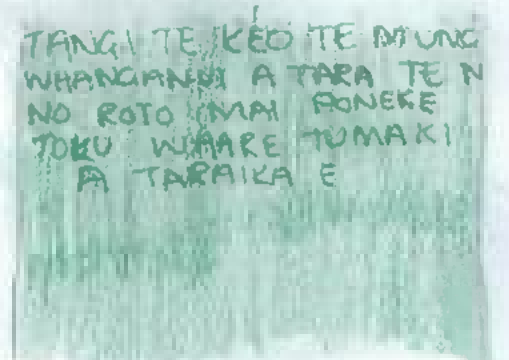 TANGI TE KEO TE MUNG
WHANGANUI A TARA TE N
NO ROTO MAI PONEKE
TOKU WHARE TUMAKI
A TARAIKA E